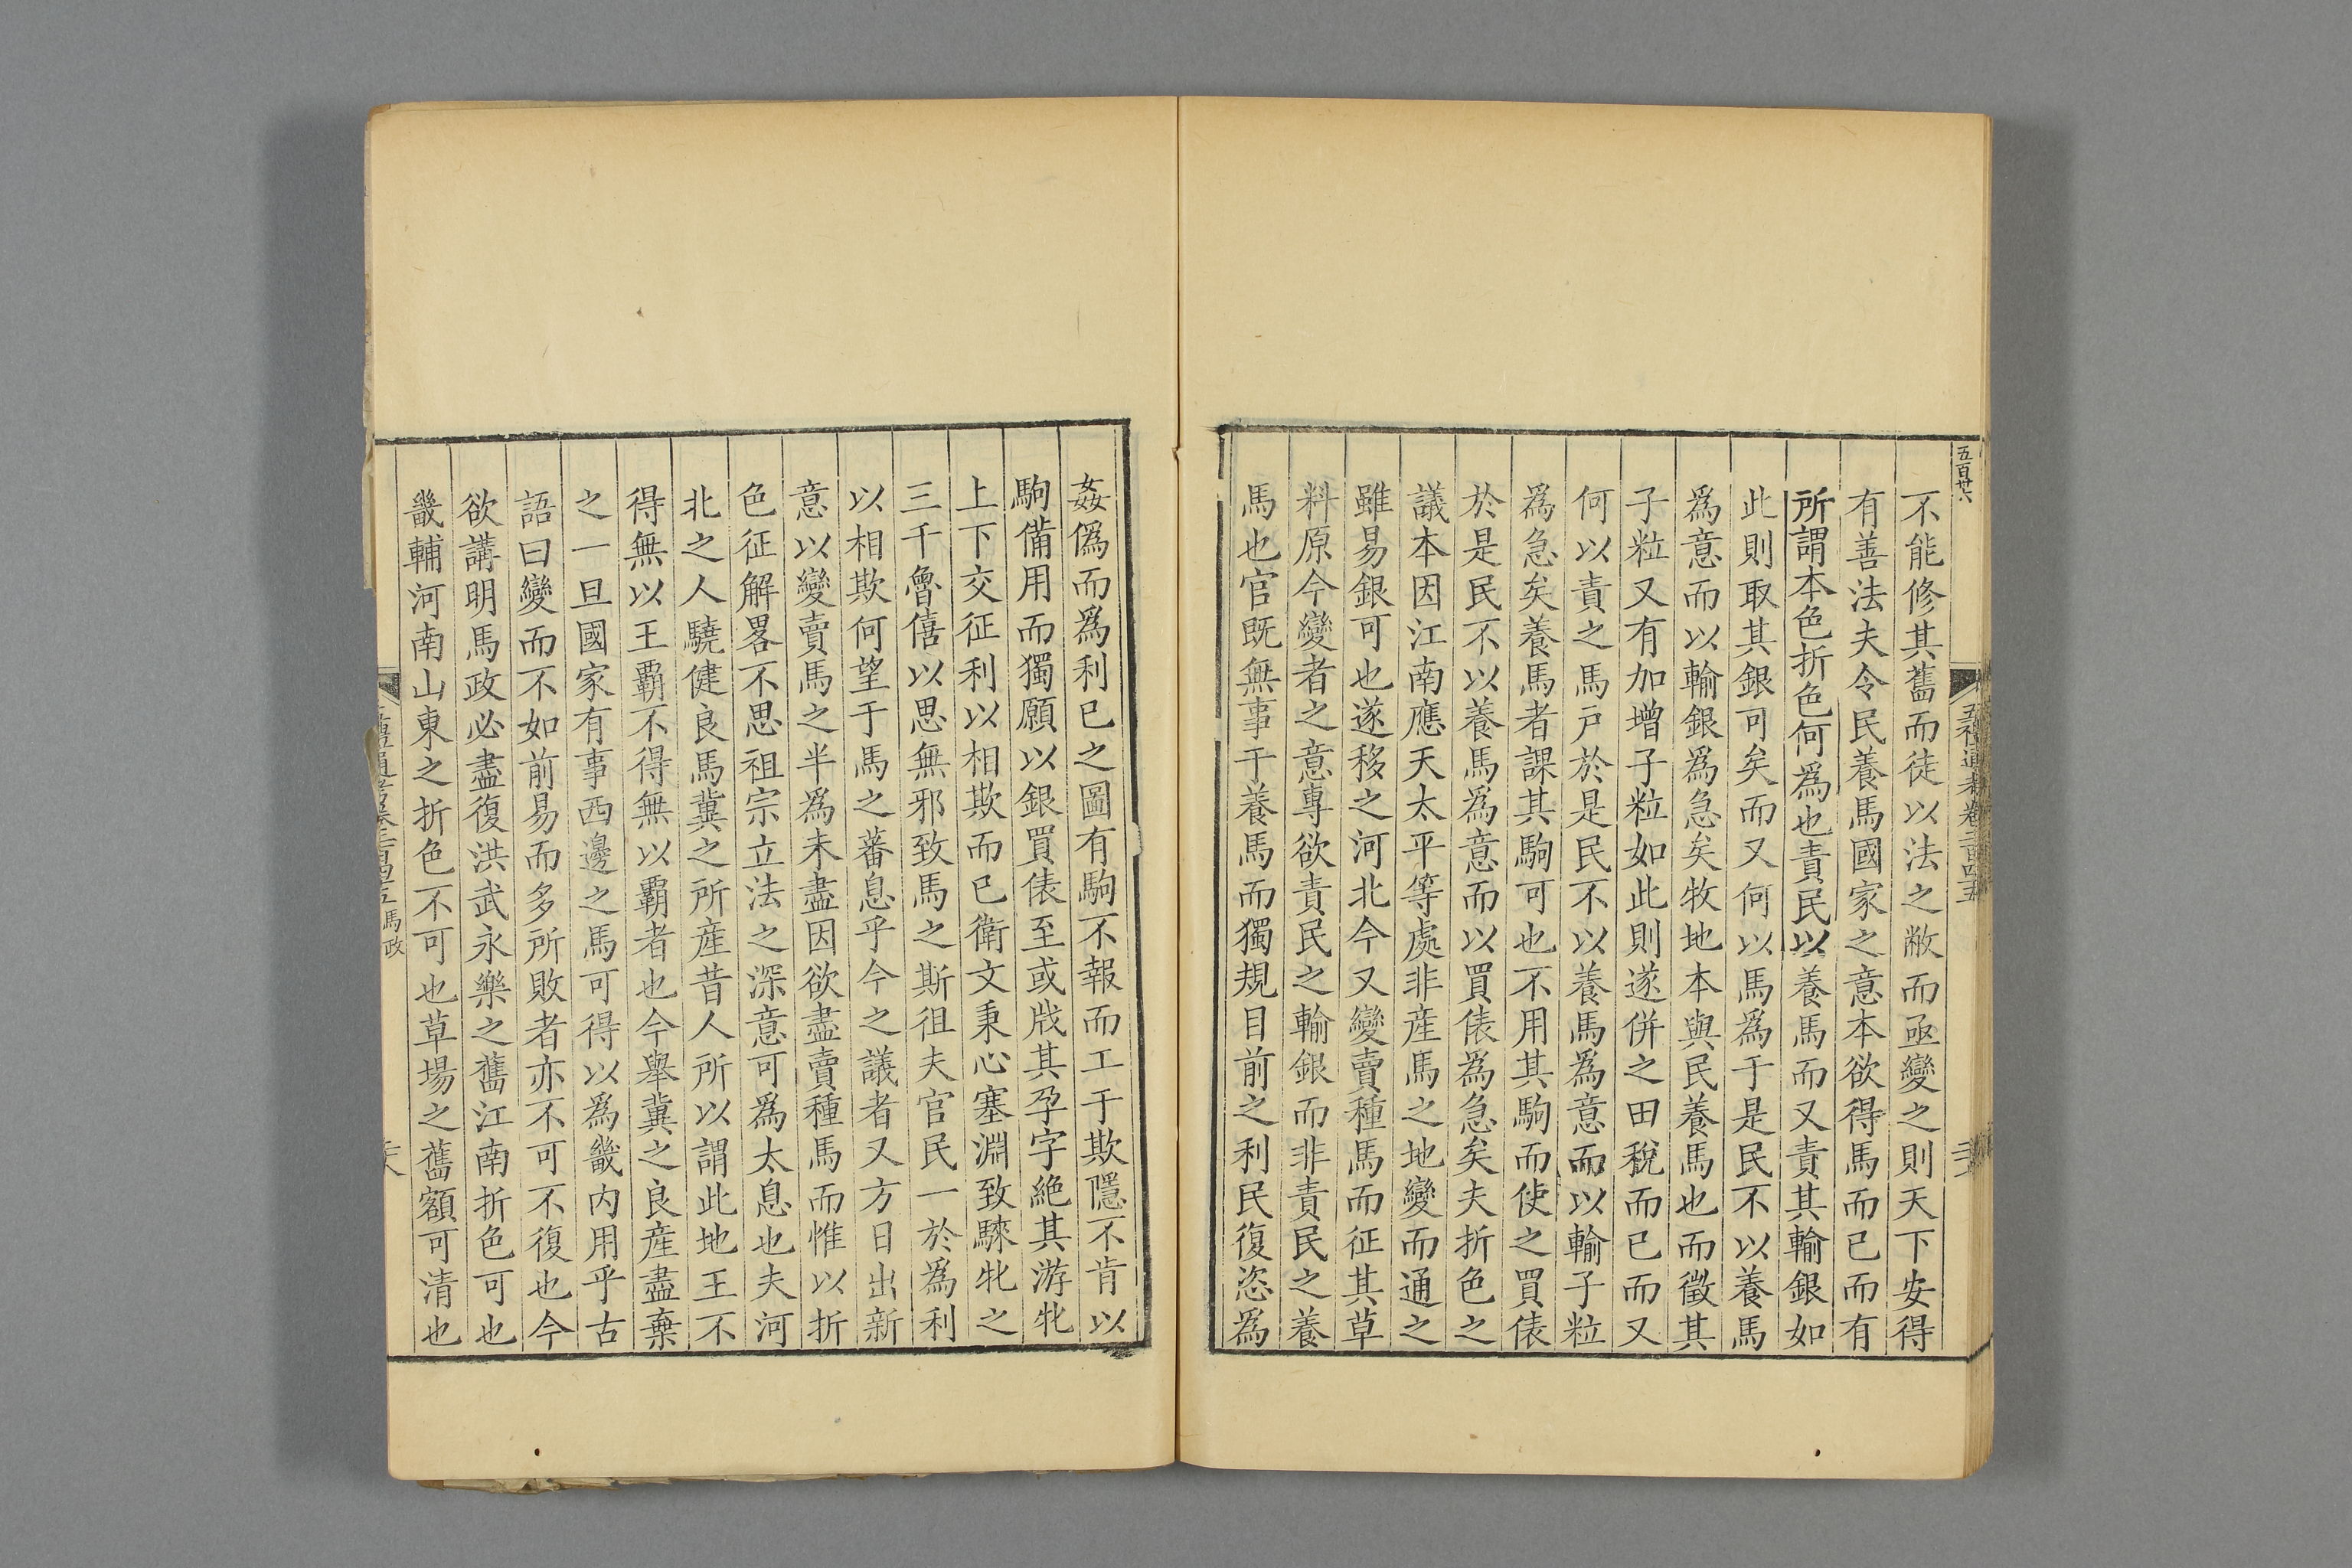 五百廿六
五禮通考卷二百四五
不能修其舊而徒以法之敝而亟變之則天下安得
有善法夫令民養馬國家之意本欲得馬而已而有
所謂本色折色何爲也責民以養馬而又責其輸銀如
此則取其銀可矣而又何以馬爲于是民不以養馬
爲意而以輸銀爲急矣牧地本與民養馬也而徵其
子粒又有加增子粒如此則遂併之田稅而已而又
何以責之馬戸於是民不以養馬爲意而以輸子粒
爲急矣養馬者課其駒可也不用其駒而使之買俵
於是民不以養馬爲意而以買俵爲急矣夫折色之
議本因江南應天太平等處非産馬之地變而通之
雖易銀可也遂移之河北今又變賣種馬而征其草
料原今變者之意專欲責民之輸銀而非責民之養
馬也官旣無事于養馬而獨規目前之利民復恣爲
姦僞而爲利已之圖有駒不報而工于欺隱不肯以
駒備用而獨願以銀買俵至或戕其孕字絶其游牝
上下交征利以相欺而已衛文秉心塞淵致騋牝之
三千魯僖以思無邪致馬之斯徂夫官民一於爲利
以相欺何望于馬之蕃息乎今之議者又方日出新
意以變賣馬之半爲未盡因欲盡賣種馬而惟以折
色征解畧不思祖宗立法之深意可爲太息也夫河
北之人驍健良馬冀之所産昔人所以謂此地王不
得無以王霸不得無以霸者也今舉冀之良産盡棄
之一旦國家有事西邊之馬可得以爲畿内用乎古
語曰變而不如前易而多所敗者亦不可不復也今
欲講明馬政必盡復洪武永樂之舊江南折色可也
畿輔河南山東之折色不可也草場之舊額可清也
馬政